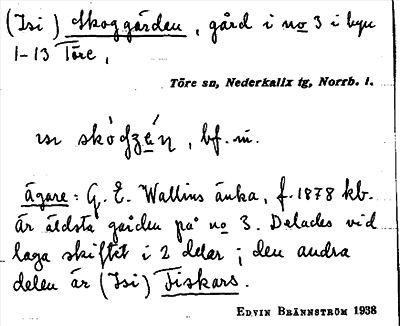 (Isi) Skoggården, gård i no 3 i byn
1-13 Töre,
Töre sn, Nederkalix tg, Norrb. l.
skógzén, bf. m.
ägare: G. E. Wallins änka, f. 1878 kb.
är äldsta gården på no 3. Delades vid
laga skiftet i 2 delar; den andra
delen är (Isi) Fiskars.
EDVIN BRÄNNSTRÖM 1938